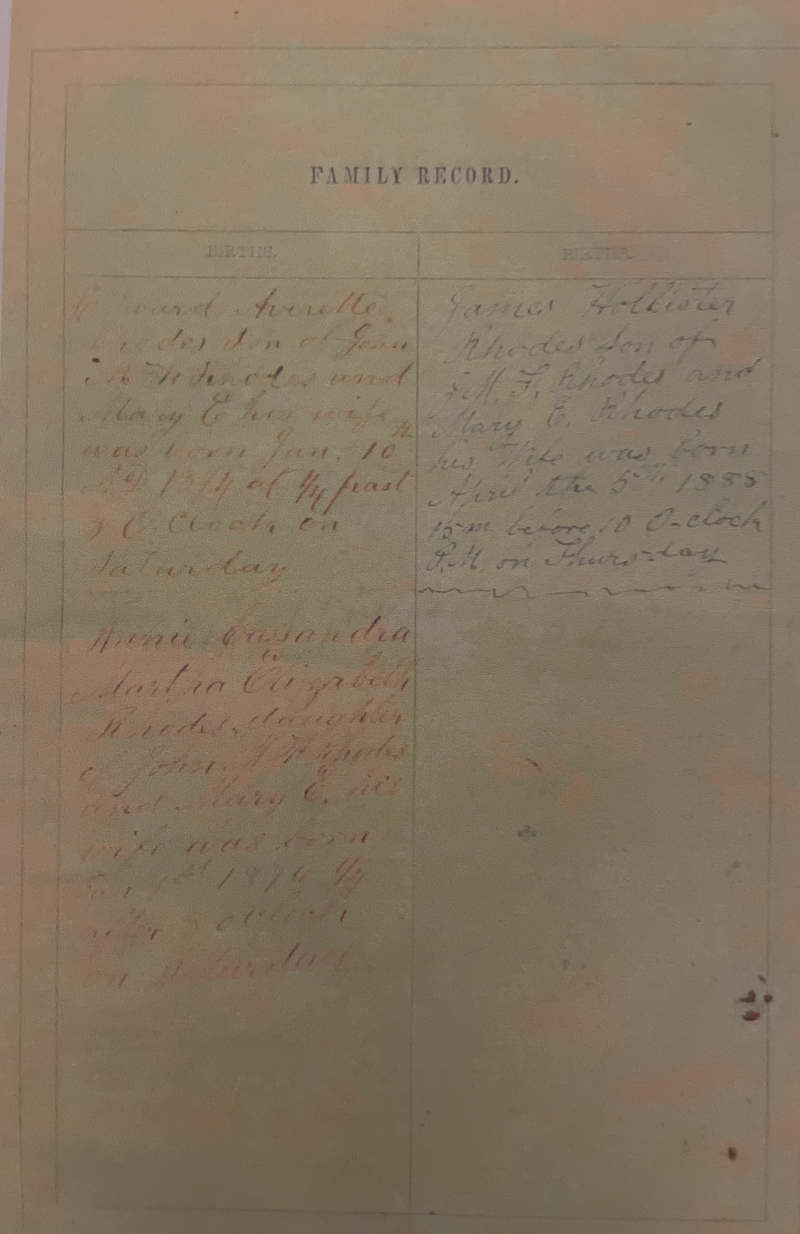 FAMILY RECORD.
BIRTHS.
Averette
Rhodes Son of John
M F Rhodes and
Mary E his wife
was born Jan. 10th
1874 at 1/4 past
3 O.Clock on
Saturday
Annie Cassandra
Martha Elizabeth
Rhodes, daughter
of John M F Rhodes
and Mary E, his
wife was born
1st 1876 1/4
after o'clock
on Saturday
BIRTHS.
James Hollister
Rhodes Son of
J. M. F. Rhodes and
Mary E. Rhodes
his Wife was born
April the 5th 1888
15m before 10 O-clock
P.M on Thursday